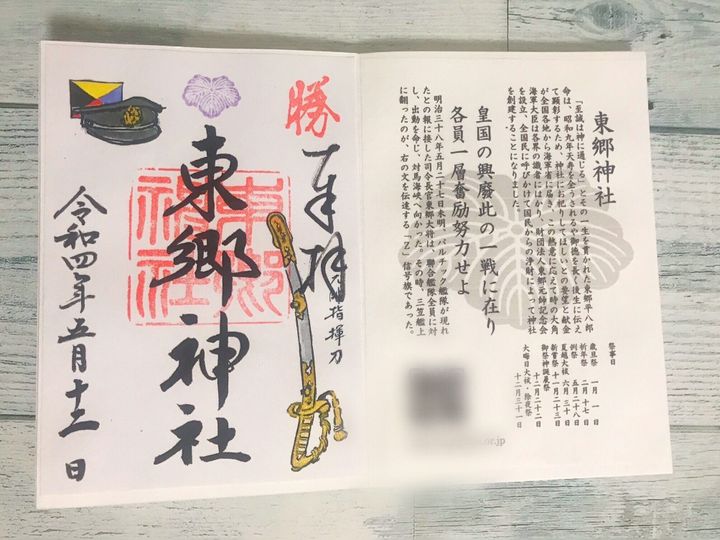 東郷神社
「至誠は神に通じる」とその一生を貫かれた東郷平八郎
命は、昭和九年天寿を全うされるや御徳を長く後生に伝え
て顕彰するため、神社にお祀りしてほしいとの要望と献金
が全国各地から海軍省に届き、この熱意に応えて時の大角
海軍大臣は各界の識者にはかり、財団法人東郷元帥記念会
を設立、全国民に呼びかけて国民からの浄財によって神社
を創建することになりました。
皇国の興廃此の一戦に在り
各員一層奮励努力せよ
明治三十八年五月二十七日未明、バルチック艦隊が現れ
たとの報に接した司令長官東郷大将は、聯合艦隊全員に対
し、出動を命じ、対馬海峡へ向かった。その時、三笠艦上
に翻ったのが、右の文を伝達する「Z」信号旗であった。
祭事日
歳旦祭 一月一日
祈年祭 二月十七日
例祭 五月二十八日
夏越大祓 六月三十日
新嘗祭 十一月二十三日
御祭神誕義祭 十二月二十二日
大晦日大祓・除夜祭 十二月三十一日
.or.jp
勝
奉拝
指揮刀
東郷神社
東郷神社
令和四年五月十二日